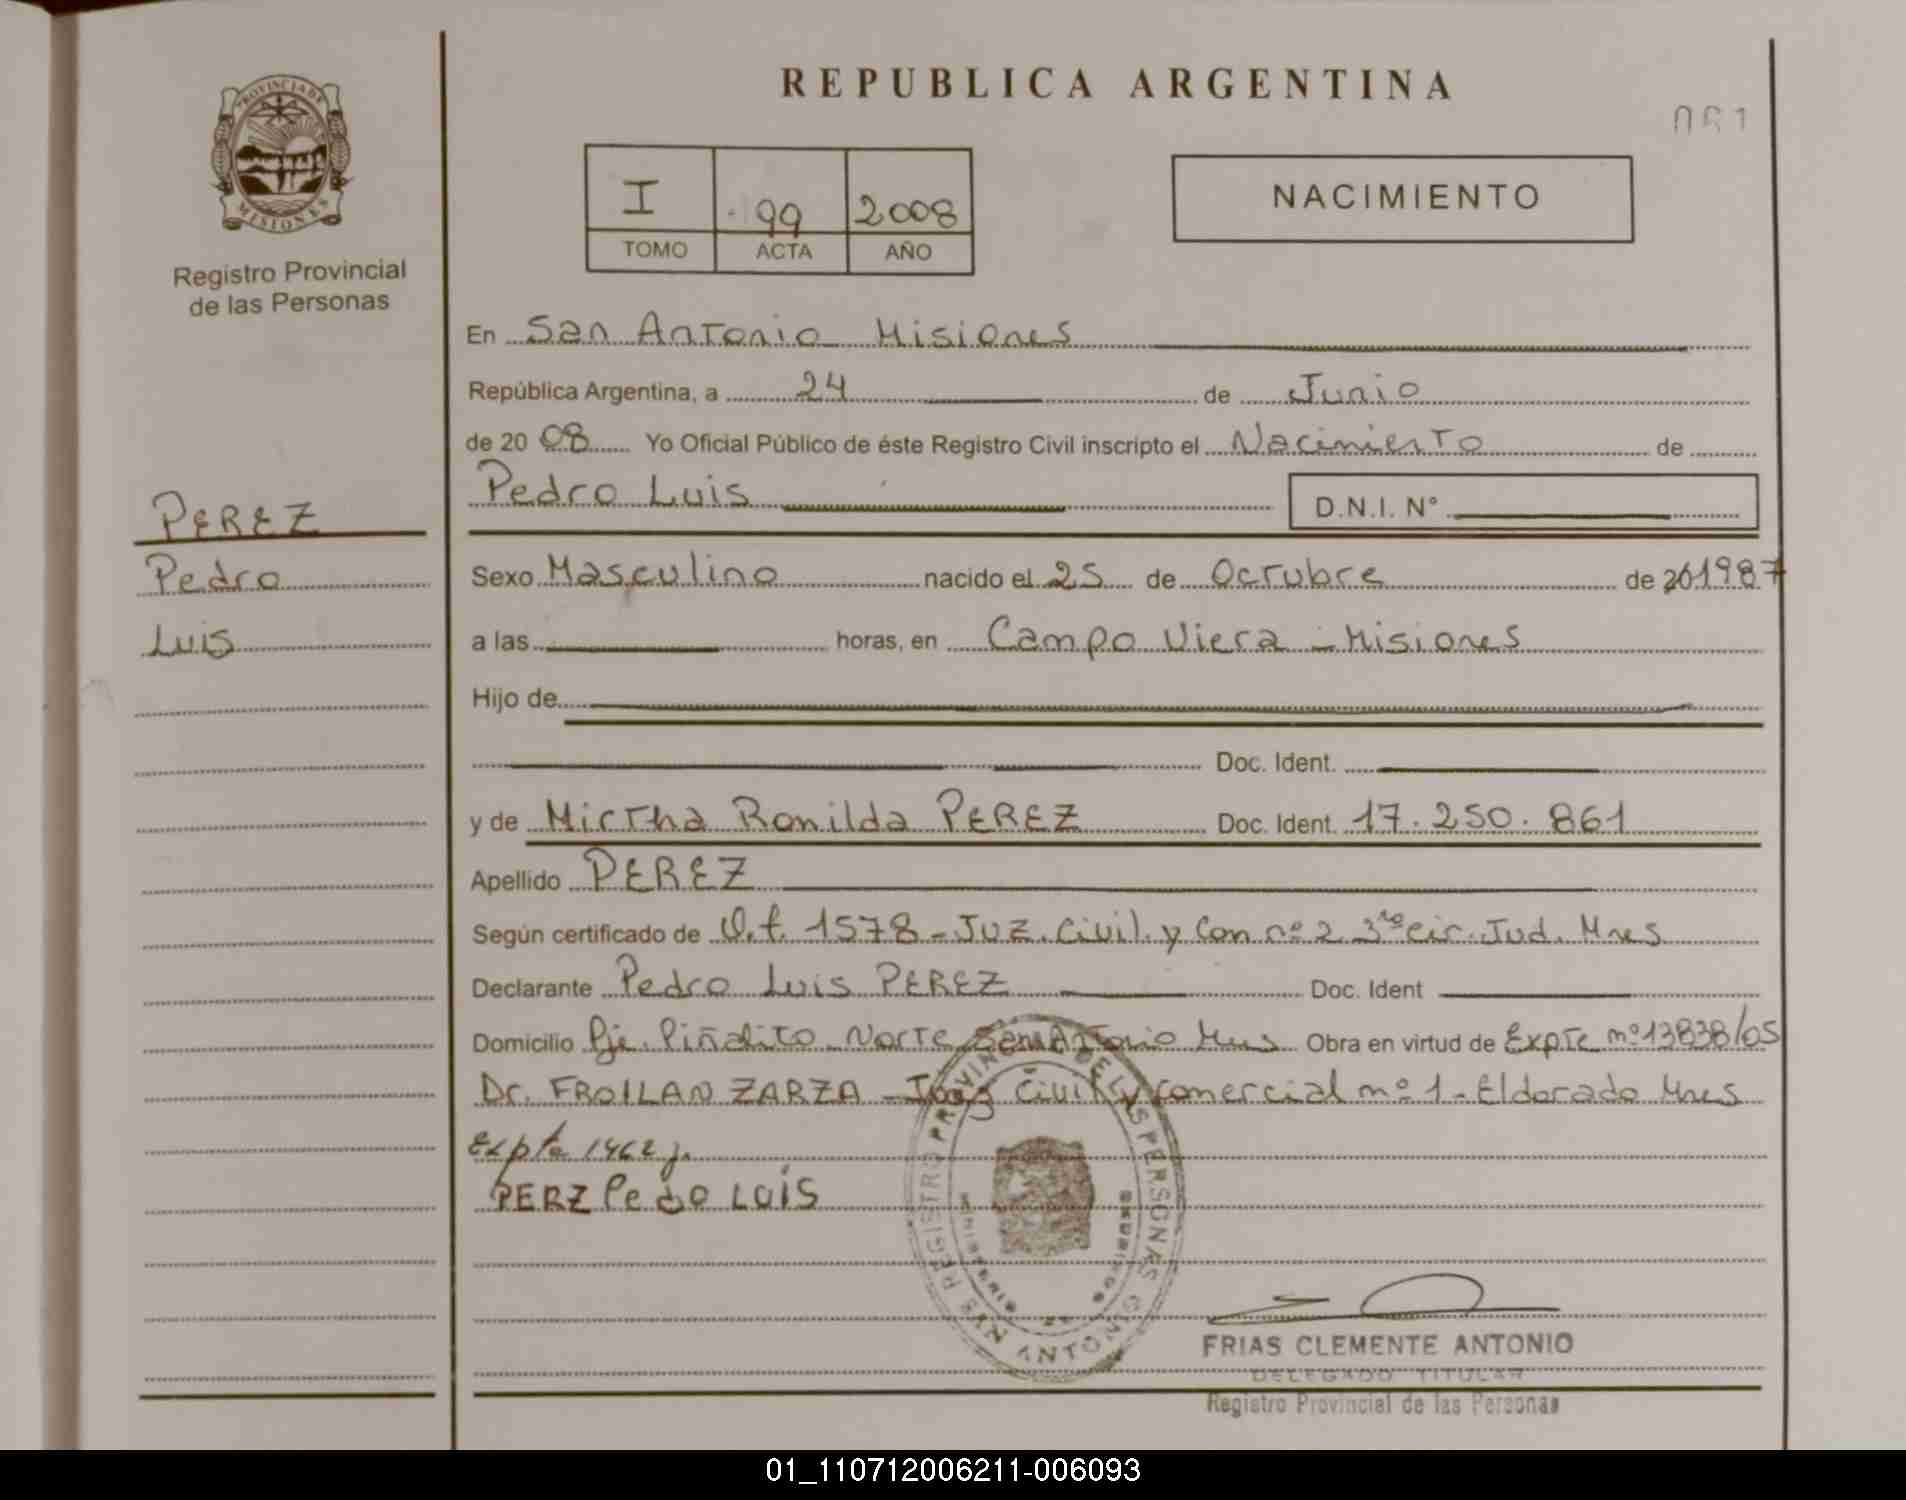 REPUBLICA ARGENTINA
061
PROVINCIA DE MISIONES
Registro Provincial
de las Personas
I 99 2008
TOMO ACTA AÑO
NACIMIENTO
En San Antonio Misiones
República Argentina, a 24 de Junio
de 20 08 Yo Oficial Público de éste Registro Civil inscripto el Nacimiento de
Pedro Luis D.N.I. N°
PEREZ
Pedro
Luis
Sexo Masculino nacido el 25 de Octubre de 20 1987
a las horas, en Campo Viera - Misiones
Hijo de
Doc. Ident.
y de Mirtha Ronilda PEREZ Doc. Ident. 17.250.861
Apellido PEREZ
Según certificado de O.f. 1578 - Juz. Civil. y Com nº 2 3ra cir. Jud. Mnes
Declarante Pedro Luis PEREZ Doc. Ident
Domicilio Pje. Piñalito Norte San Antonio Mnes Obra en virtud de Expte nº 13838/05
Dr. FROILAN ZARZA - Juez Civil y Comercial nº 1 - Eldorado Mnes
Expte 1462
PERZ Pedo LUiS
REGISTRO PROVINCIAL DE LAS PERSONAS
SAN ANTONIO
FRIAS CLEMENTE ANTONIO
DELEGADO TITULAR
Registro Provincial de las Personas
01_110712006211-006093